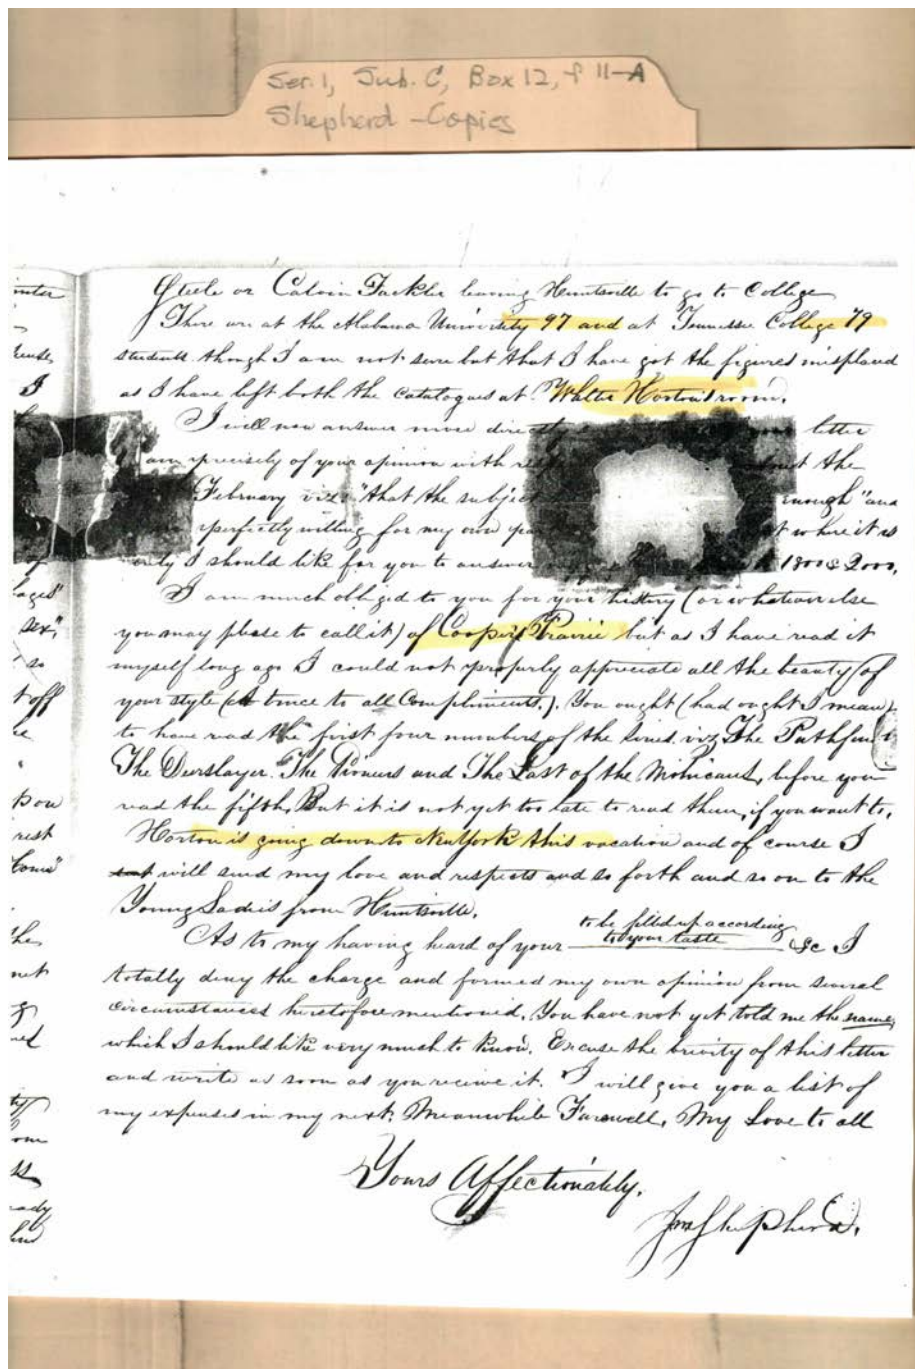 Ser. 1, Sub. C, Box 12, f 11-A
Shepherd - Copies
Steele or Calvin Fackler leaving Huntsville to go to College
There are at the Alabama University 97 and at Tennessee College 79
students though I am not sure but that I have got the figures misplaced
as I have left both the catalogues at Walter Horton's room.
I will now answer more letter
am precisely of your opinion with the
February viz "that the subject enough" and
perfectly willing for my own where it is
only I should like for you to answer 1800 & 2000,
I am much obliged to you for your history (or whatever else
you may please to call it) of Cooper's Prairie but as I have read it
myself long ago I could not properly appreciate all the beauty of
your style (A truce to all Compliments.). You ought (had ought I mean)
to have read the first four numbers of the series. viz The Pathfinder
The Deerslayer. The Pioneers and The Last of the Mohicans, before you
read the fifth, But it is not yet too late to read them, if you want to.
Horton is going down to New York this vacation and of course I
will send my love and respects and so forth and so on to the
Young Ladies from Huntsville.
As to my having heard of your to be filled up according to your taste &c I
totally deny the charge and formed my own opinion from several
circumstances heretofore mentioned. You have not yet told me the name,
which I should like very much to know. Excuse the brevity of this letter
and write as soon as you receive it. I will give you a list of
my expenses in my next. Meanwhile Farewell. My Love to all
Yours Affectionately.
Shepherd.